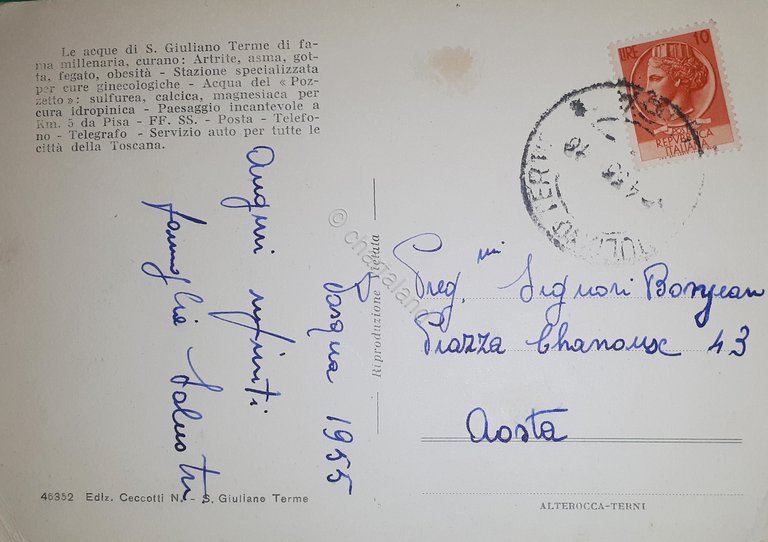 Le acque di S. Giuliano Terme di fa-
ma millenaria, curano: Artrite, asma, got-
ta, fegato, obesità - Stazione specializzata
per cure ginecologiche - Acqua del « Poz-
zetto »: sulfurea, calcica, magnesiaca per
cura idropinica - Paesaggio incantevole a
Km. 5 da Pisa - FF. SS. - Posta - Telefo-
no - Telegrafo - Servizio auto per tutte le
città della Toscana.
Auguri infiniti
famiglia
Pasqua 1955
46352 Ediz. Ceccotti N. - S. Giuliano Terme
Riproduzione vietata
© chagaland
LIRE 10
REPUBBLICA
ITALIANA
Preg.mi Signori Bonjean
Piazza Chanoux 43
Aosta
ALTEROCCA-TERNI